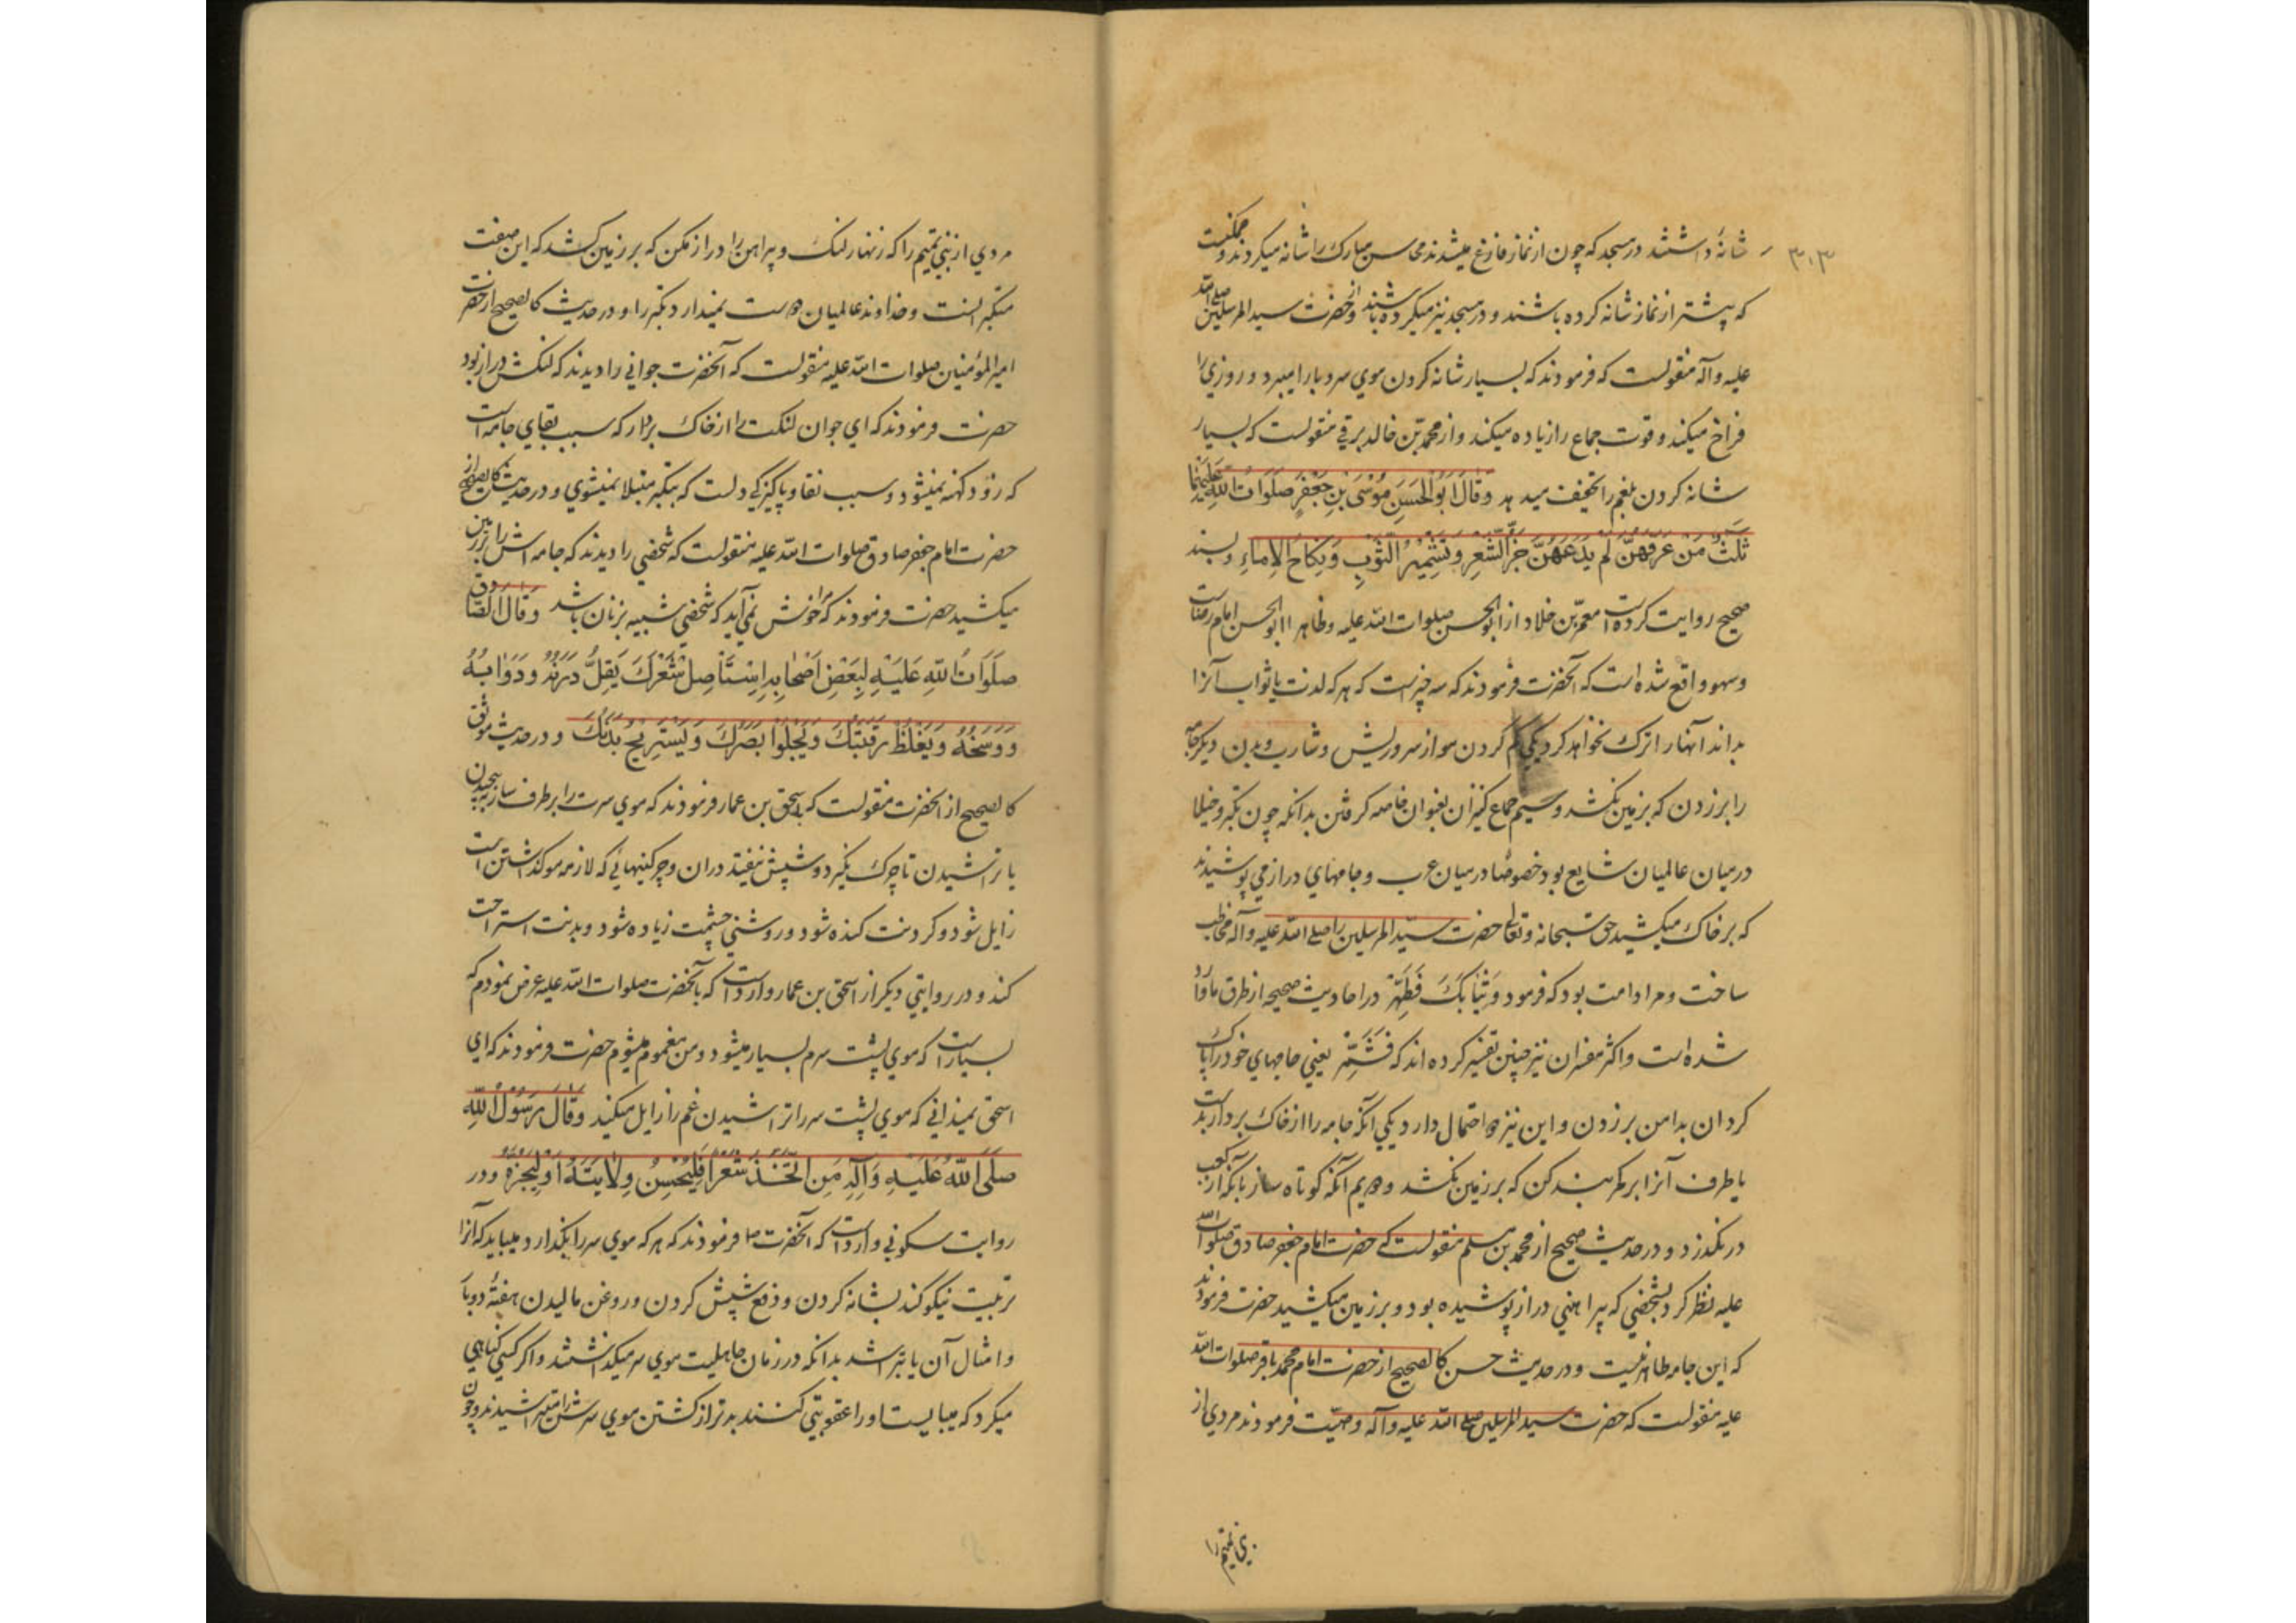 ۳۰۳
شانهٔ داشتند در مسجد که چون از نماز فارغ میشدند محاسن مبارک را شانه میکردند و ممکنست
که پیشتر از نماز شانه کرده باشند و در مسجد نیز میکرده باشند و از حضرت سید المرسلین صلی الله
علیه و آله منقولست که فرمودند که بسیار شانه کردن موی سر وبا را میبرد و روزی را
فراخ میکند و قوت جماع را زیاده میکند و از محمد بن خالد برقی منقولست که بسیار
شانه کردن بلغم را تخفیف میدهد وَقَالَ اَبُو الْحَسَنِ مُوْسَى بْنِ جَعْفَرٍ صَلَوَاتُ اللهِ عَلَیْهِمَا
ثَلٰثٌ مَنْ عَرَفَهُنَّ لَمْ یَدَعْهُنَّ جَزُّ الشَّعْرِ وَتَشْمِیْرُ الثَّوْبِ وَنِکَاحُ الْاِمَاءِ و بسند
صحیح روایت کرده است معمّر بن خلاد از ابو الحسن صلوات الله علیه و ظاهرا ابو الحسن امام رضاست
و سهو واقع شده است که آنحضرت فرمودند که سه چیز است که هر که لذت یا ثواب آنرا
بداند آنها را ترک نخواهد کرد یکی کم کردن مو از سر و ریش و شارب و بدن دیگر جامه
را بر زدن که بر زمین نکشد و سیم جماع کنیزان بعنوان خاصه گرفتن بدانکه چون تکبر و خیلا
در میان عالمیان شایع بود خصوصًا در میان عرب و جامهای دراز می پوشیدند
که بر خاک میکشید حق سبحانه و تعالی حضرت سیّد المرسلین را صلی الله علیه و آله مخاطب
ساخت و مراد امت بود که فرمود وَثِیَابَکَ فَطَهِّرْ در احادیث صحیحه از طرق ما وارد
شده است و اکثر مفسران نیز چنین تفسیر کرده اند که فَشَمِّرْ یعنی جامهای خود را پاک
گردان بدامن بر زدن و این نیز دو احتمال دارد یکی آنکه جامه را از خاک بردار بدست
یا طرف آنرا بر کمر بند کن که بر زمین نکشد و دویم آنکه کوتاه ساز بانکه از کعب
در نگذرد و در حدیث صحیح از محمد بن مسلم منقولست که حضرت امام جعفر صادق صلوات الله
علیه نظر کرد بشخصی که پیراهنی دراز پوشیده بود و بر زمین میکشید حضرت فرمودند
که این جامه طاهر نیست و در حدیث حسن کالصحیح از حضرت امام محمد باقر صلوات الله
علیه منقولست که حضرت سید المرسلین صلی الله علیه و آله وصیّت فرمودند مردی از
بنی تمیم را
مردی از بنی تمیم را که زنهار لنک و پیراهن را دراز مکن که بر زمین کشد که این صفت
متکبرانست و خداوند عالمیان دوست نمیدارد تکبر را و در حدیث کالصحیح از حضرت
امیر المؤمنین صلوات الله علیه منقولست که آنحضرت جوانی را دیدند که لنکش دراز بود
حضرت فرمودند که ای جوان لنکت را از خاک بردار که سبب بقای جامه است
که زود کهنه نمیشود و سبب نقا و پاکیزکی دلست که بتکبر مبتلا نمیشوی و در حدیث کالصحیح از
حضرت امام جعفر صادق صلوات الله علیه منقولست که شخصی را دیدند که جامه اش را بر زمین
میکشید حضرت فرمودند که مرا خوش نمی آید که شخصی شبیه بزنان باشد وَقَالَ الصَّادِقُ
صَلَوَاتُ اللهِ عَلَیْهِ لِبَعْضِ اَصْحَابِهِ اِسْتَاْصِلْ شَعْرَکَ یَقِلُّ دَرَنُهُ وَدَوَابُّهُ
وَوَسَخُهُ وَیَغْلُظُ رَقَبَتُکَ وَیَجْلُوْا بَصَرَکَ وَیَسْتَرِیْحُ بَدَنُکَ و در حدیث موثق
کالصحیح از آنحضرت منقولست که باسحق بن عمار فرمودند که موی سرت را بر طرف ساز بچیدن
یا تراشیدن تا چرک نگیرد و شپش نیفتد دران و چرکینهائی که لازمه مو گذاشتن است
زایل شود و کردنت کنده شود و روشنی چشمت زیاده شود و بدنت استراحت
کند و در روایتی دیکر از اسحق بن عمار وارد است که بآنحضرت صلوات الله علیه عرض نمودم که
بسیار است که موی پشت سرم بسیار میشود و من مغموم میشوم حضرت فرمودند که ای
اسحق نمیدانی که موی پشت سر را تراشیدن غم را زایل میکند وَقَالَ رَسُوْلُ اللهِ
صَلَّى اللهُ عَلَیْهِ وَآلِهِ مَنِ اتَّخَذَ شَعْرًا فَلْیُحْسِنْ وِلَایَتَهُ اَوْ لِیَجُزَّهُ و در
روایت سکونی وارد است که آنحضرت ص فرمودند که هر که موی سر را بگذارد میباید که آنرا
تربیت نیکو کند بشانه کردن و دفع شپش کردن و روغن مالیدن هفتهٔ دوبار
و امثال آن یا بتراشد بدانکه در زمان جاهلیت موی سر میکذاشتند و اکر کسی کناهی
میکرد که میبایست او را عقوبتی کنند بدتر از کشتن موی سرش را میتراشیدند و چون